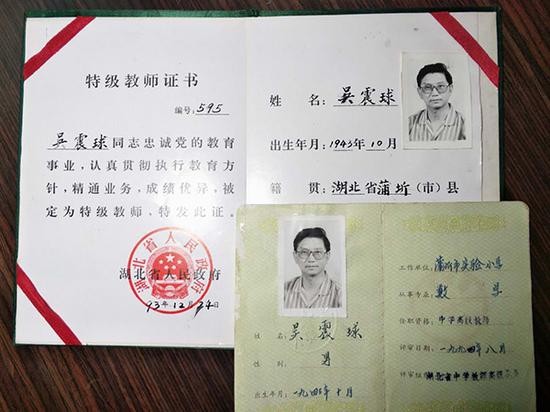 特级教师证书
编号:595
吴震球同志忠诚党的教育
事业,认真贯彻执行教育方
针,精通业务,成绩优异,被
定为特级教师,特发此证。
湖北省人民政府
93年12月24日
姓 名:吴震球
出生年月:1943年10月
籍 贯:湖北省蒲圻(市)县
姓 名 吴震球
性 别 男
出生年月:一九四三年十月
工作单位:蒲圻市实验小学
从事专业:数 学
任职资格:中学高级教师
评审日期:一九九四年八月
评审组织:湖北省中学教师高级